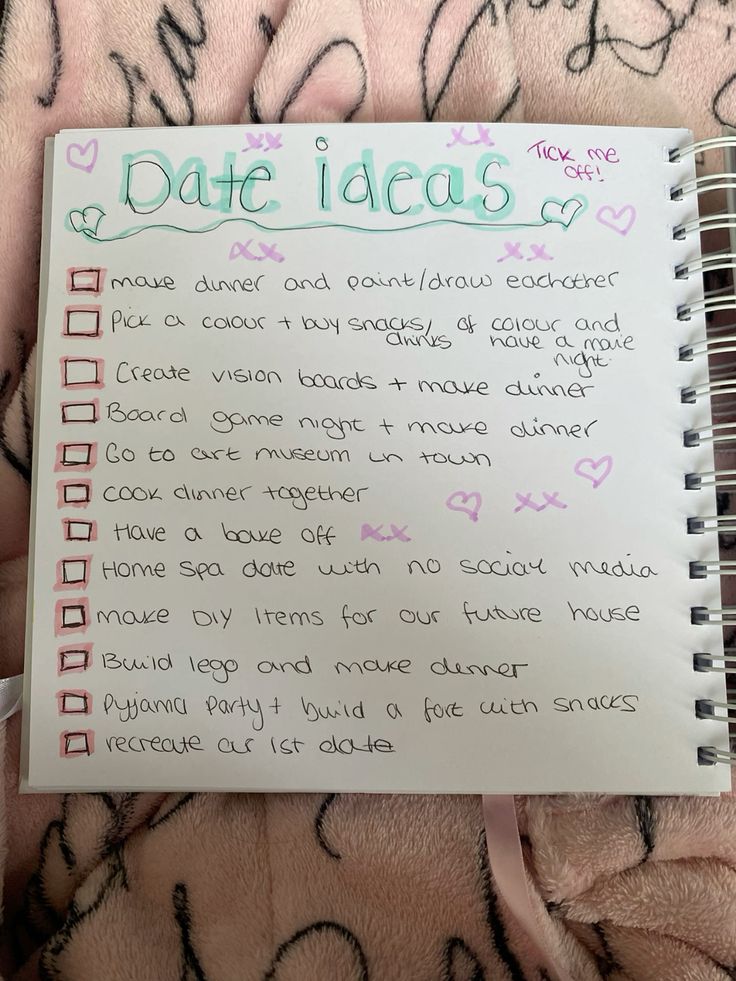 xx xx
Date ideas
Tick me
off!
xx xx
make dinner and paint/draw eachother
Pick a colour + buy snacks/ of colour and
drinks have a movie
night.
Create vision boards + make dinner
Board game night + make dinner
Go to art museum in town
cook dinner together
xx
Have a bake off xx
Home spa date with no social media
make DIY Items for our future house
Build lego and make dinner
Pyjama party + build a fort with snacks
recreate our 1st date